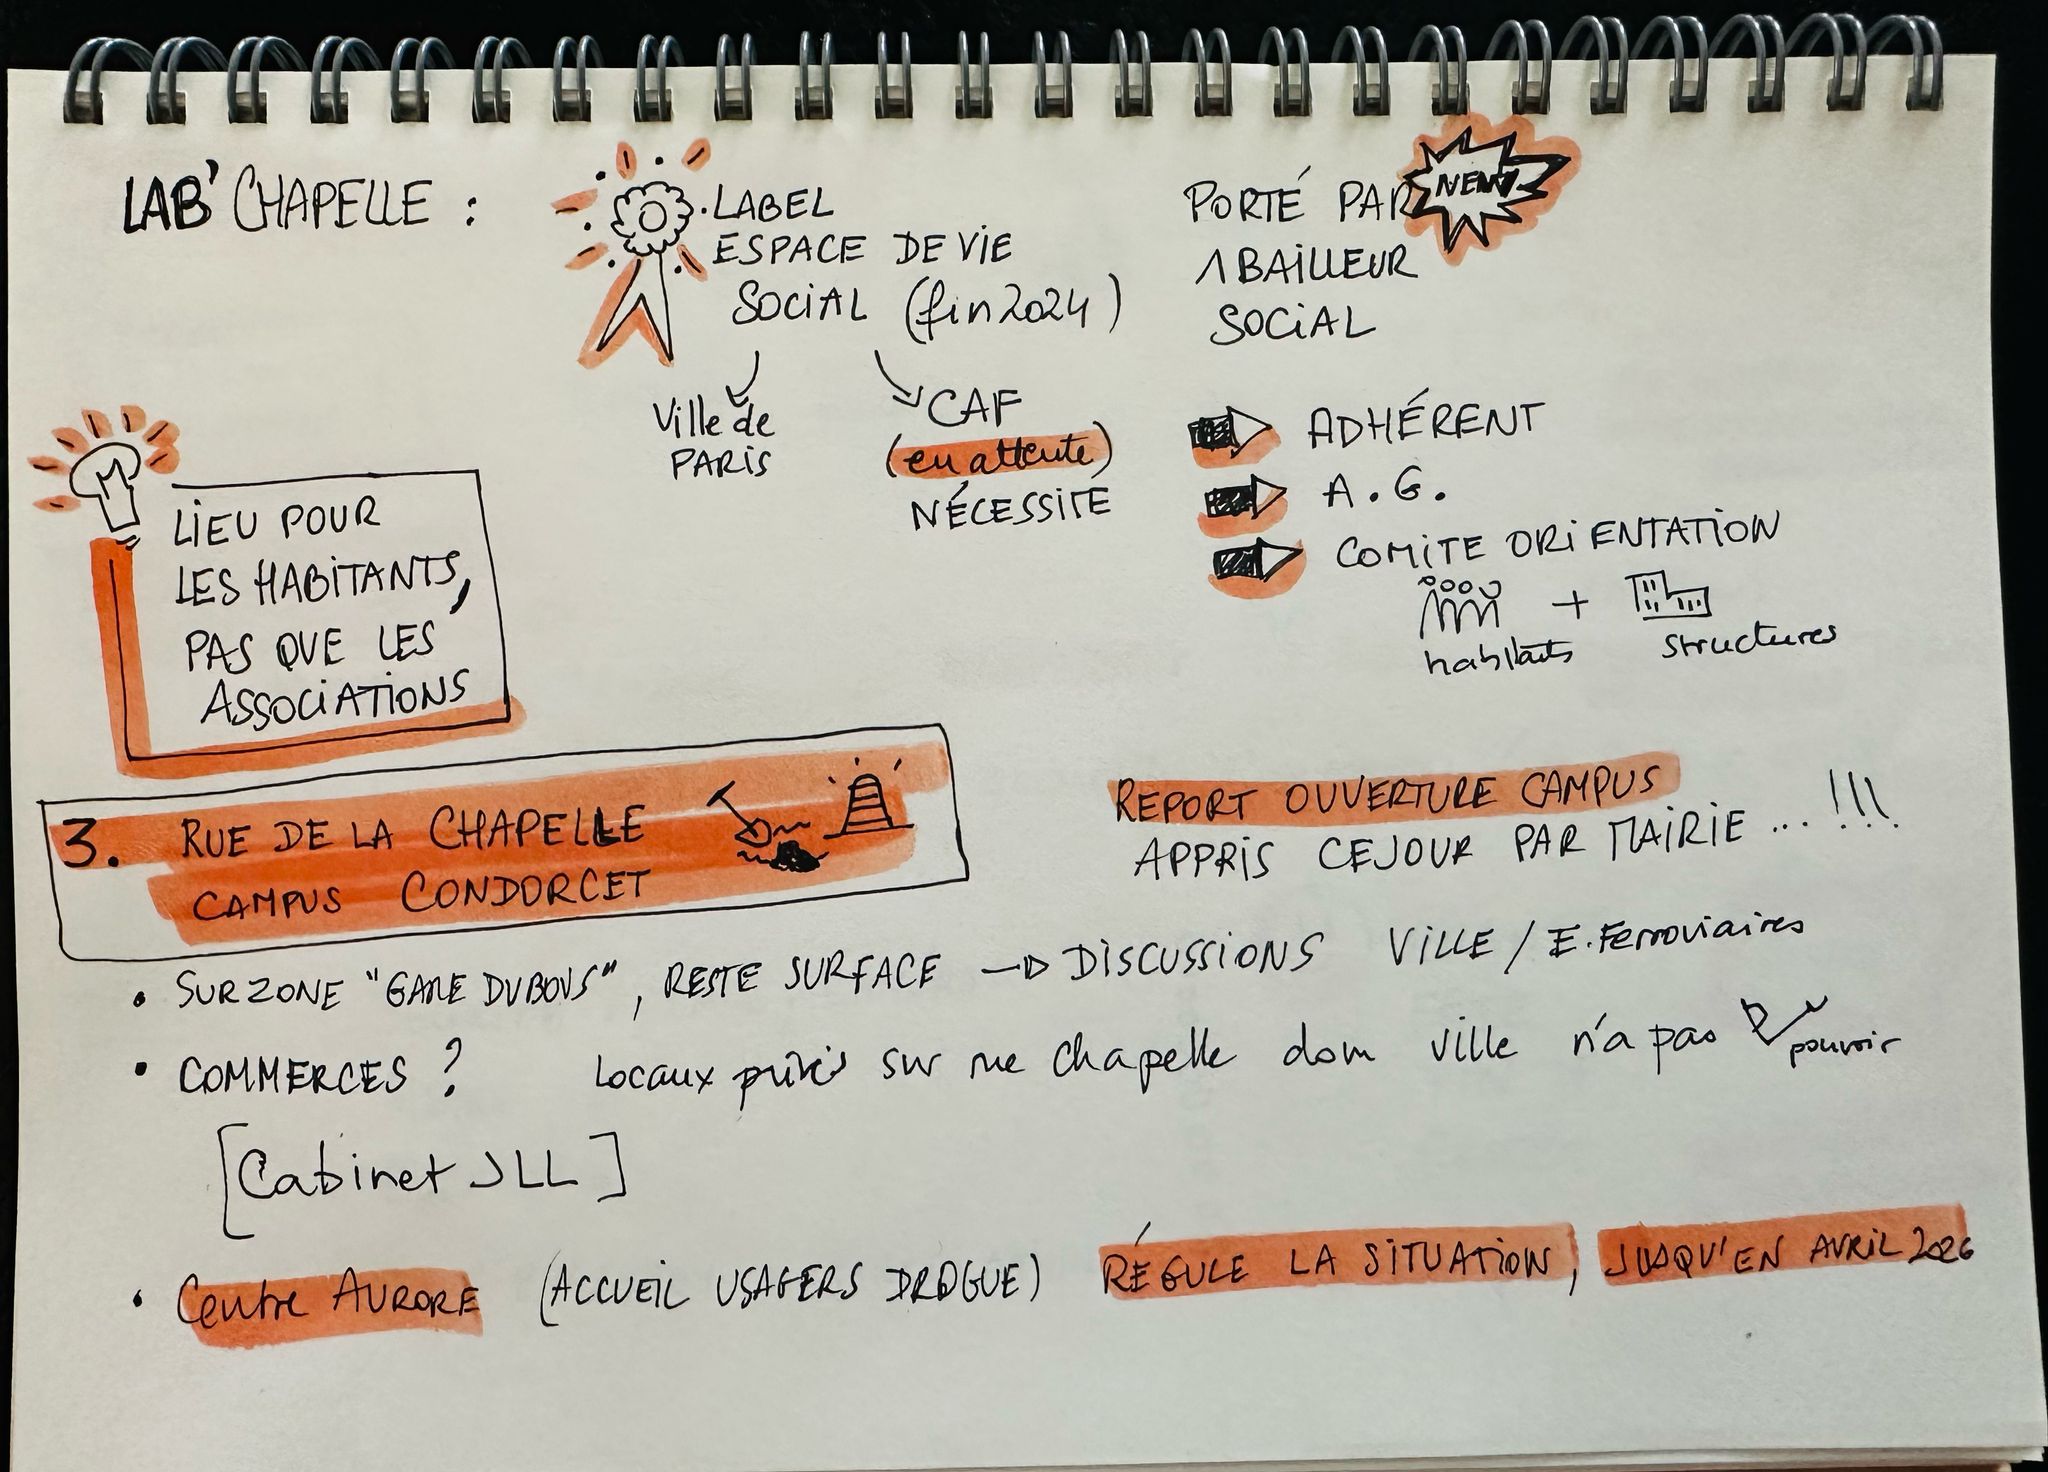 LAB' CHAPELLE :
LABEL
ESPACE DE VIE
SOCIAL (fin 2024)
Ville de
PARIS
CAF
(en attente)
NÉCESSITE
PORTÉ PAR
1 BAILLEUR
SOCIAL
NEW
ADHÉRENT
A.G.
COMITE ORIENTATION
+
habitants
structures
LIEU POUR
LES HABITANTS,
PAS QUE LES
ASSOCIATIONS
3. RUE DE LA CHAPELLE
CAMPUS CONDORCET
REPORT OUVERTURE CAMPUS
APPRIS CE JOUR PAR MAIRIE ... !!!
• SUR ZONE "GARE DUBOUS", RESTE SURFACE → DISCUSSIONS VILLE / E. Ferroviaires
• COMMERCES ? Locaux privés sur rue Chapelle dom ville n'a pas
pouvoir
[Cabinet JLL]
• Centre AURORE (ACCUEIL USAGERS DROGUE) RÉGULE LA SITUATION, JUSQU'EN AVRIL 2026